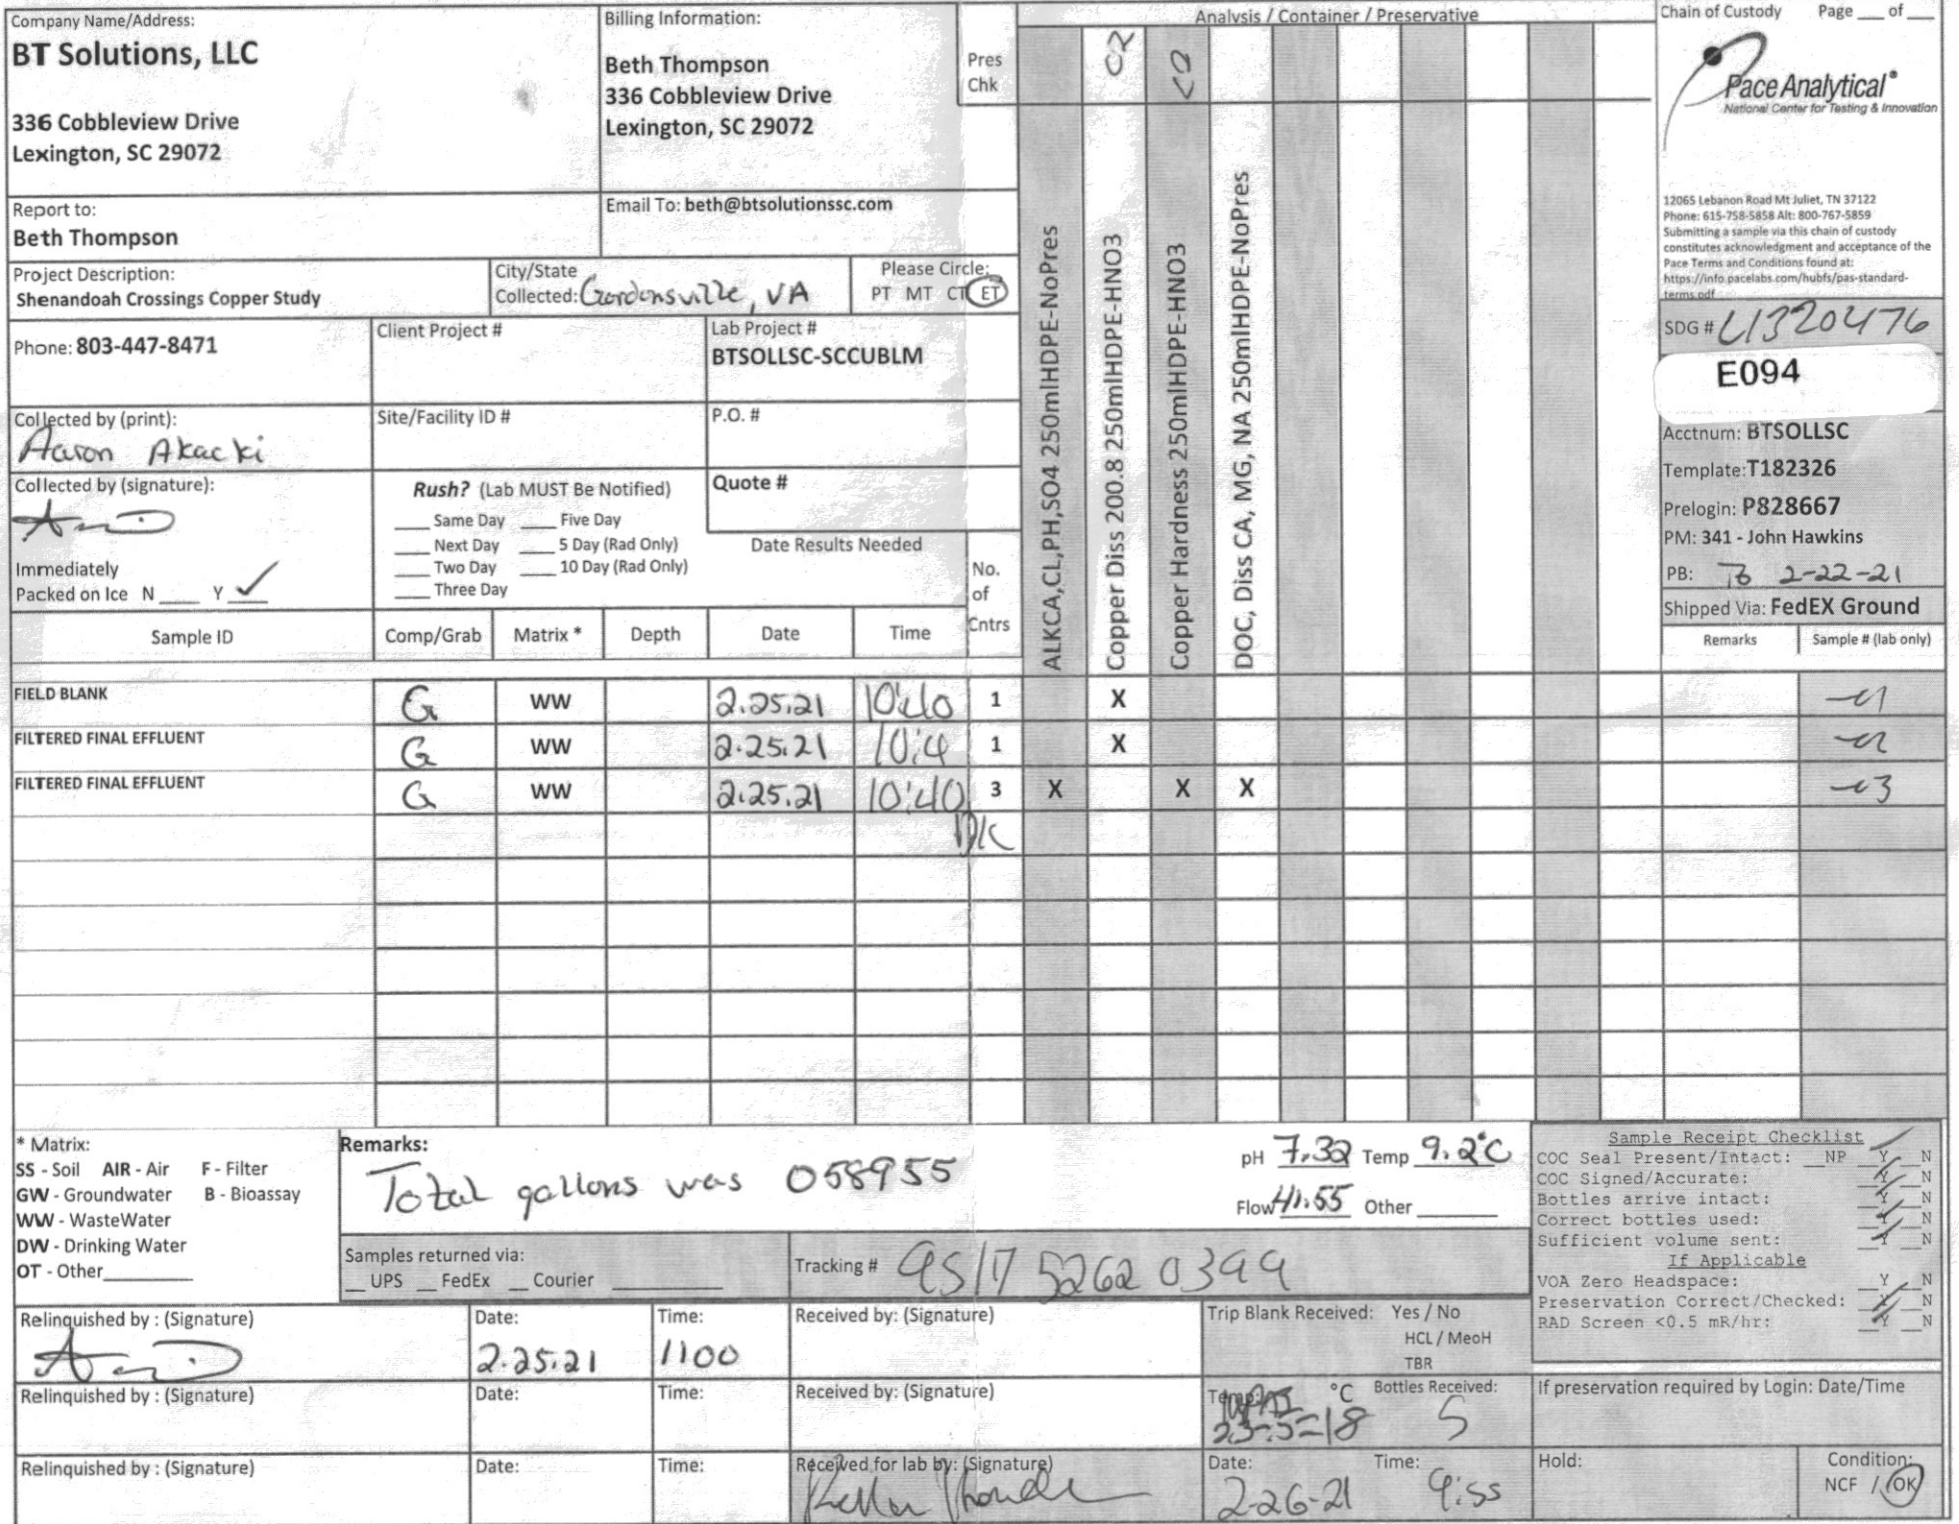 Company Name/Address:
BT Solutions, LLC
336 Cobbleview Drive
Lexington, SC 29072
Billing Information:
Beth Thompson
336 Cobbleview Drive
Lexington, SC 29072
Pres
Chk
Analysis / Container / Preservative
Chain of Custody Page ___ of ___
Pace Analytical®
National Center for Testing & Innovation
12065 Lebanon Road Mt Juliet, TN 37122
Phone: 615-758-5858 Alt: 800-767-5859
Submitting a sample via this chain of custody
constitutes acknowledgment and acceptance of the
Pace Terms and Conditions found at:
https://info.pacelabs.com/hubfs/pas-standard-
terms.pdf
Report to:
Beth Thompson
Email To: beth@btsolutionssc.com
Project Description:
Shenandoah Crossings Copper Study
City/State
Collected: Gordonsville, VA
Please Circle:
PT MT CT ET
Phone: 803-447-8471
Client Project #
Lab Project #
BTSOLLSC-SCCUBLM
Collected by (print):
Aaron Akacki
Site/Facility ID #
P.O. #
Collected by (signature):
Rush? (Lab MUST Be Notified)
___ Same Day ___ Five Day
___ Next Day ___ 5 Day (Rad Only)
___ Two Day ___ 10 Day (Rad Only)
___ Three Day
Quote #
Date Results Needed
Immediately
Packed on Ice N ___ Y ✓
No.
of
Cntrs
ALKCA,CL,PH,SO4 250mlHDPE-NoPres
Copper Diss 200.8 250mlHDPE-HNO3
Copper Hardness 250mlHDPE-HNO3
DOC, Diss CA, MG, NA 250mlHDPE-NoPres
SDG # L1320476
E094
Acctnum: BTSOLLSC
Template: T182326
Prelogin: P828667
PM: 341 - John Hawkins
PB: 2-22-21
Shipped Via: FedEX Ground
Remarks Sample # (lab only)
Sample ID Comp/Grab Matrix * Depth Date Time
FIELD BLANK G WW 2.25.21 10:40 1 X -01
FILTERED FINAL EFFLUENT G WW 2.25.21 10:4 1 X -02
FILTERED FINAL EFFLUENT G WW 2.25.21 10:40 3 X X X -03
* Matrix:
SS - Soil AIR - Air F - Filter
GW - Groundwater B - Bioassay
WW - WasteWater
DW - Drinking Water
OT - Other
Remarks:
Total gallons was 058955
pH 7.32 Temp 9.2°C
Flow 41.55 Other
Samples returned via:
__ UPS __ FedEx __ Courier
Tracking # 9517 5262 0399
Sample Receipt Checklist
COC Seal Present/Intact: __NP Y __N
COC Signed/Accurate: Y __N
Bottles arrive intact: Y __N
Correct bottles used: Y __N
Sufficient volume sent: Y __N
If Applicable
VOA Zero Headspace: Y __N
Preservation Correct/Checked: Y __N
RAD Screen <0.5 mR/hr: Y __N
Relinquished by : (Signature)
Date:
2.25.21
Time:
1100
Received by: (Signature)
Trip Blank Received: Yes / No
HCL / MeoH
TBR
Relinquished by : (Signature)
Date:
Time:
Received by: (Signature)
Temp: °C Bottles Received:
5
If preservation required by Login: Date/Time
Relinquished by : (Signature)
Date:
Time:
Received for lab by: (Signature)
Date:
2-26-21
Time:
9:55
Hold:
Condition:
NCF / OK